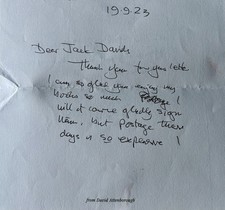 19.9.23
Dear Jack Davids
Thank you for your letter
I am so glad you enjoy my
books so much Postage !
will of course gladly sign
them, but Postage these
days is so expensive !
from David Attenborough